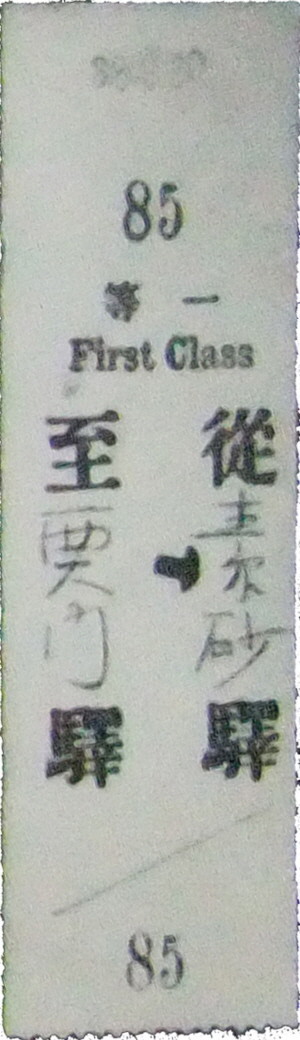 85
一等
First Class
從素砂驛
至西大門驛
85